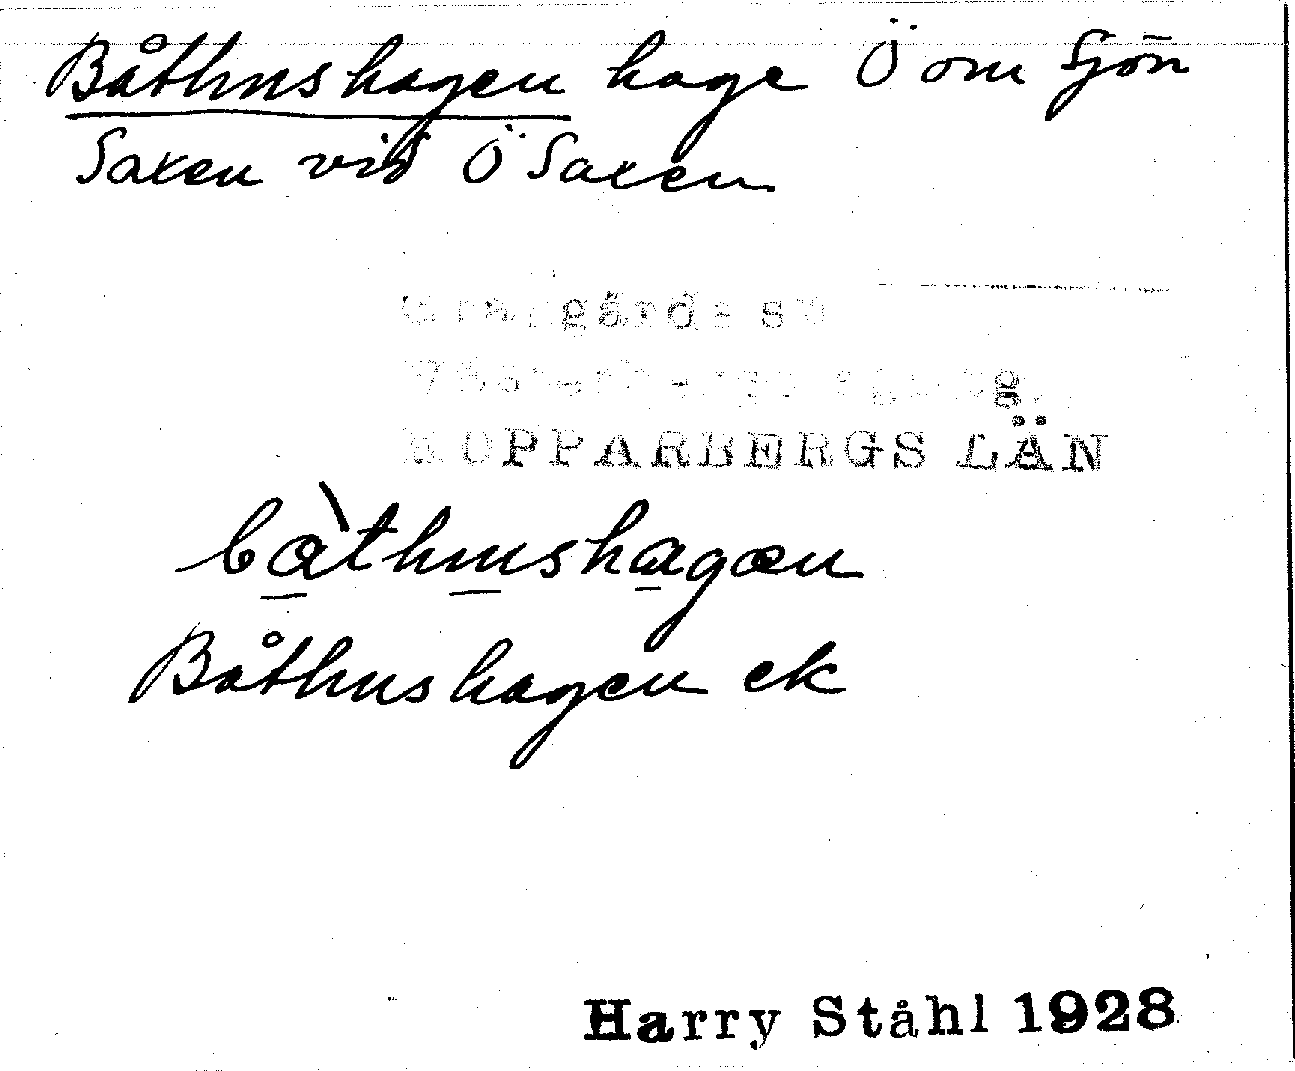 Båthushagen hage Ö om sjön
Saxen vid Ö Saxen
Grangärde sn
KOPPARBERGS LÄN
bàthushagæn
Båthushagen ek
Harry Ståhl 1928